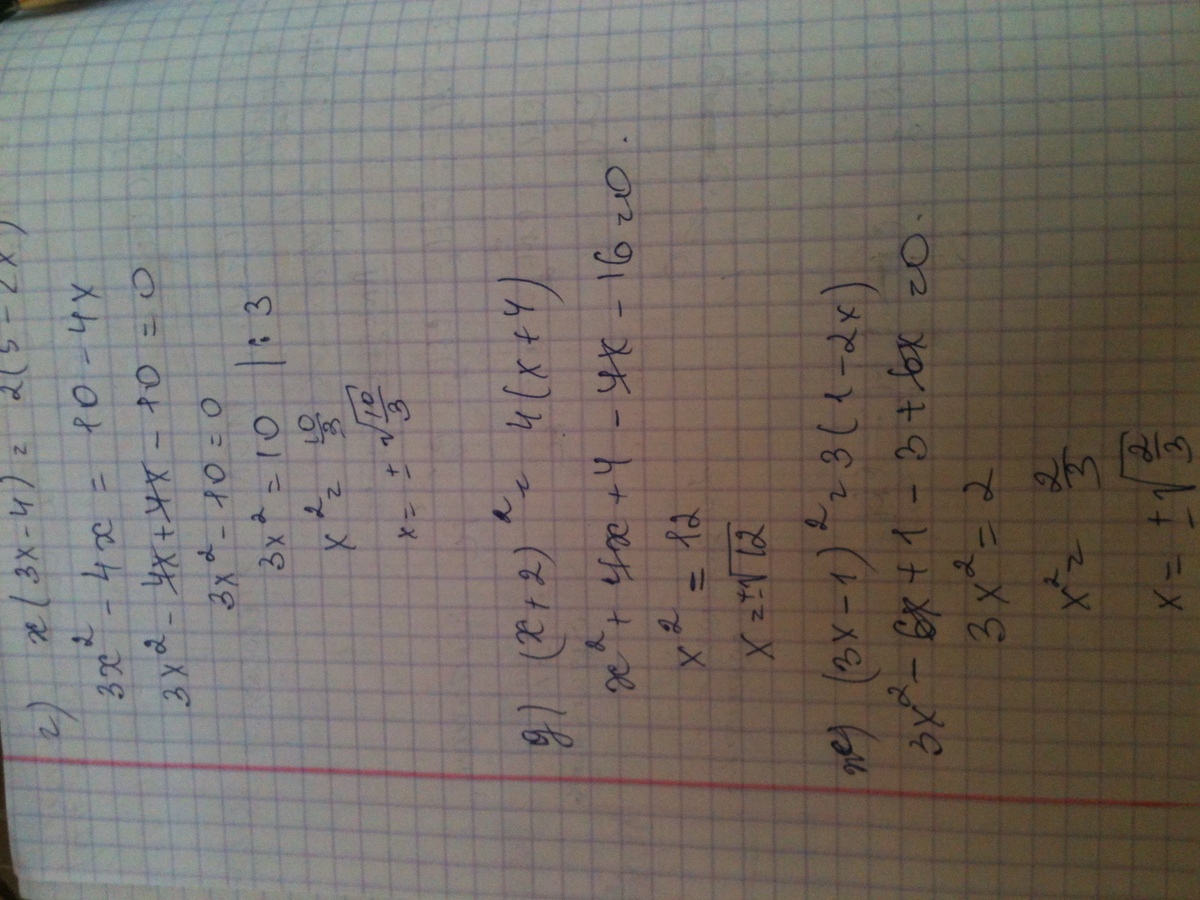 г) x(3x-4) = 2(5-2x)
3x² - 4x = 10 - 4x
3x² - 4x + 4x - 10 = 0
3x² - 10 = 0
3x² = 10 |: 3
x² = 10/3
x = ± √(10/3)
д) (x+2)² = 4(x+4)
x² + 4x + 4 - 4x - 16 = 0.
x² = 12
x = ±√12
ж) (3x-1)² = 3(1-2x)
3x² - 6x + 1 - 3 + 6x = 0.
3x² = 2
x² = 2/3
x = ± √(2/3)